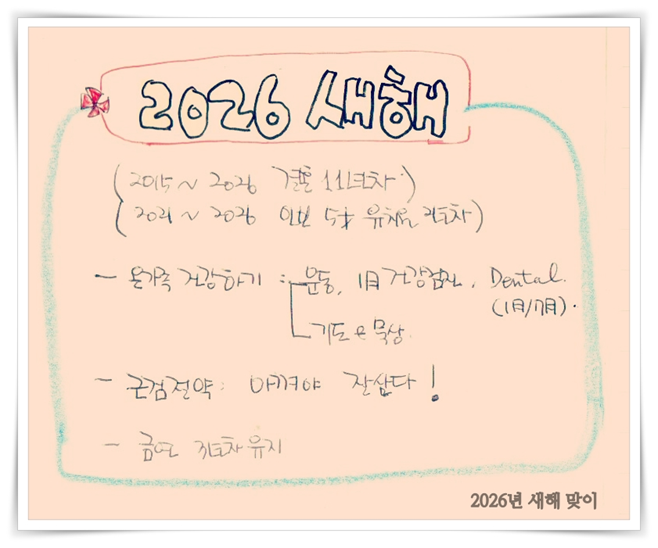 2026 새해
(2015 ~ 2026 결혼 11년차)
(2021 ~ 2026 5才 유치원 2년차)
- 온가족 건강하기 : 운동, 1月 건강검진, Dental.
(1月/7月).
기도와 묵상.
- 근검절약 : 아껴야 잘산다!
- 금연 3년차 유지
2026년 새해 맞이